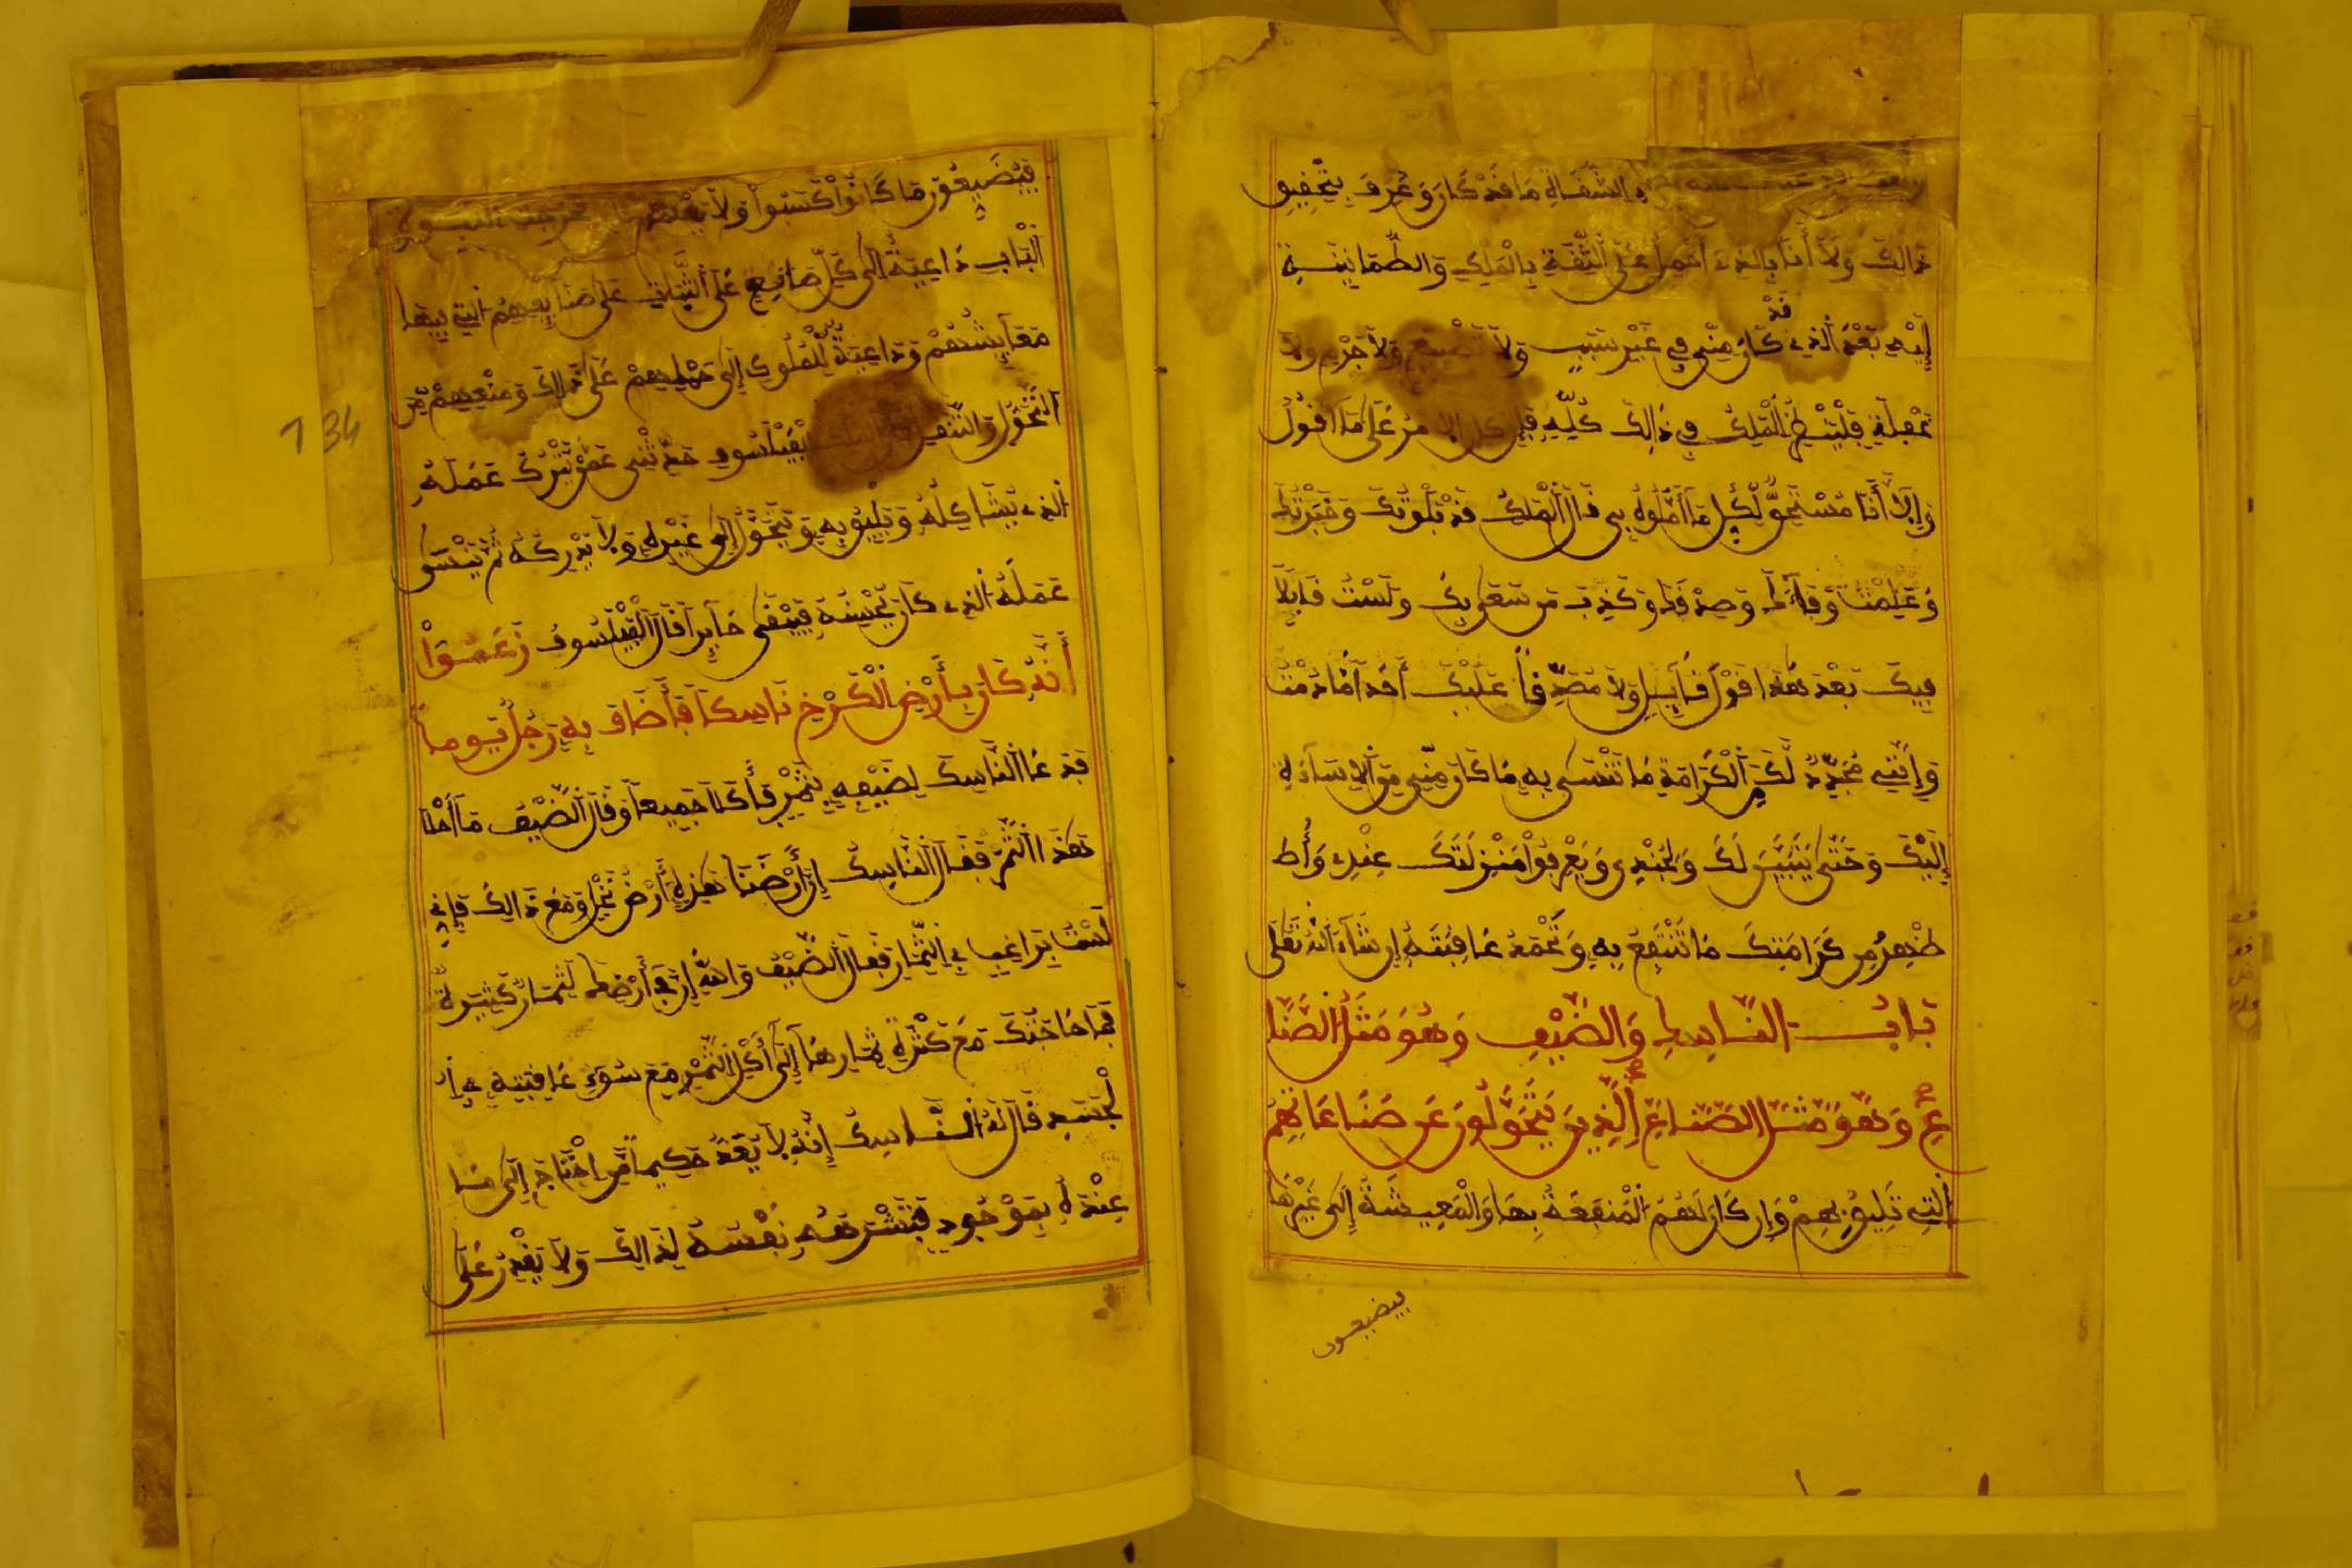 السَّفَالَةِ مَا قَدْ كَانَ وَعُرِفَ بِتَحْقِيقِ
ذَالِكَ وَلَا أَنَا بِالذِي أَحْمِلُ عَلَى الثِّقَةِ بِالْمَلِكِ وَالطُّمَانِينَـةِ
إِلَيْهِ بَعْدَ الَّذِي قَدْ كَانَ مِنِّي فِي غَيْرِ سَبَبٍ وَلَا تَضْيِيعٍ وَلَا جُرْمٍ وَلَا
فِي ذَالِكَ كُلِّهِ عَلَى مَا أَقُولُ
وَإِلَّا أَنَا مُسْتَحِقٌّ لِكُلِّ مَا أَمَّلُوهُ بِي قَالَ الْمَلِكُ قَدْ بَلَوْتُكَ وَخَبَرْتُكَ
وَعَلِمْتُ وَفَاءَكَ وَصِدْقَكَ وَكَذِبَ مَن سَعَى بِكَ وَلَسْتُ قَابِلًا
فِيكَ بَعْدَ هَذَا قَوْلَ قَائِلٍ وَلَا مُصَدِّقًا عَلَيْكَ أَحَدًا مَا دُمْتُ
وَإِنَّنِي مُجَدِّدٌ لَكَ مِنَ الْكَرَامَةِ مَا تَنْسَى بِهِ مَا كَانَ مِنِّي مِنَ الْإِسَاءَةِ
إِلَيْكَ وَحَتَّى يَتَبَيَّنَ لَكَ وَلِجُنْدِي وَيَعْرِفُوا مَنْزِلَتَكَ عِنْدِي وَأَنَا
مُظْهِرٌ مِن كَرَامَتِكَ مَا تَنْتَفِعُ بِهِ وَتَحْمَدُ عَاقِبَتَهُ إِن شَاءَ اللَّهُ تَعَلَى
بَابُ النَّاسِكِ وَالضَّيْفِ وَهُوَ مَثَلُ الصُّنَّا
عِ وَهُوَ مَثَلُ الصُّنَّاعِ الَّذِينَ يَتَحَوَّلُونَ عَن صِنَاعَاتِهِمْ
الَّتِي تَلِيقُ بِهِمْ وَإِن كَانَ لَهُمُ الْمَنْفَعَةُ بِهَا وَالْمَعِيشَةُ إِلَى غَيْرِهَا
فيضيعون
فَيُضَيِّعُونَ مَا كَانُوا اكْتَسَبُوا وَلَا
الْبَابِ دَاعِيَةٌ إِلَى كُلِّ صَانِعٍ عَلَى الثَّبَاتِ عَلَى صَنَائِعِهِمُ الَّتِي فِيهَا
مَعَايِشُهُمْ وَدَاعِيَةٌ لِلْمُلُوكِ إِلَى حَمْلِهِمْ عَلَى ذَالِكَ وَمَنْعِهِمْ مِنَ
التَّحَوُّلِ وَالتَّنَقُّلِ لِلْفَيْلَسُوفِ حَدِّثْنِي عَمَّنْ يَتْرُكُ عَمَلَهُ
الَّذِي يُشَاكِلُهُ وَيَلِيقُ بِهِ وَيَتَحَوَّلُ إِلَى غَيْرِهِ وَلَا يُدْرِكُهُ ثُمَّ يَنْسَى
عَمَلَهُ الَّذِي كَانَ يُحْسِنُهُ فَيَبْقَى حَائِرًا قَالَ الْفَيْلَسُوفُ زَعَمُوا
أَنَّهُ كَانَ بِأَرْضِ الْكَرْخِ نَاسِكًا فَأَضَافَ بِهِ رَجُلٌ يَوْمًا
فَدَعَا النَّاسِكُ لِضَيْفِهِ بِتَمْرٍ فَأَكَلَا جَمِيعًا وَقَالَ الضَّيْفُ مَا أَحْلَا
هَذَا التَّمْرَ فَقَالَ النَّاسِكُ إِنَّ أَرْضَنَا هَذِهِ أَرْضُ نَخْلٍ وَمَعَ ذَالِكَ فَإِنِّي
لَسْتُ بِرَاغِبٍ فِي الثِّمَارِ فَقَالَ الضَّيْفُ وَاللَّهِ إِنَّ فِي أَرْضِكَ لَثِمَارٌ كَثِيرَةٌ
فَمَا حَاجَتُكَ مَعَ كَثْرَةِ ثِمَارِهَا إِلَى أَكْلِ التَّمْرِ مَعَ سُوءِ عَاقِبَتِهِ فِي ا
لْجَسَدِ قَالَ لَهُ النَّاسِكُ إِنَّهُ لَا يُعَدُّ حَكِيمًا مَنِ احْتَاجَ إِلَى مَا
عِنْدَهُ بِمَوْجُودٍ فَتَشْرَهُهُ نَفْسُهُ لِذَالِكَ وَلَا يَقْدِرُ عَلَى
134